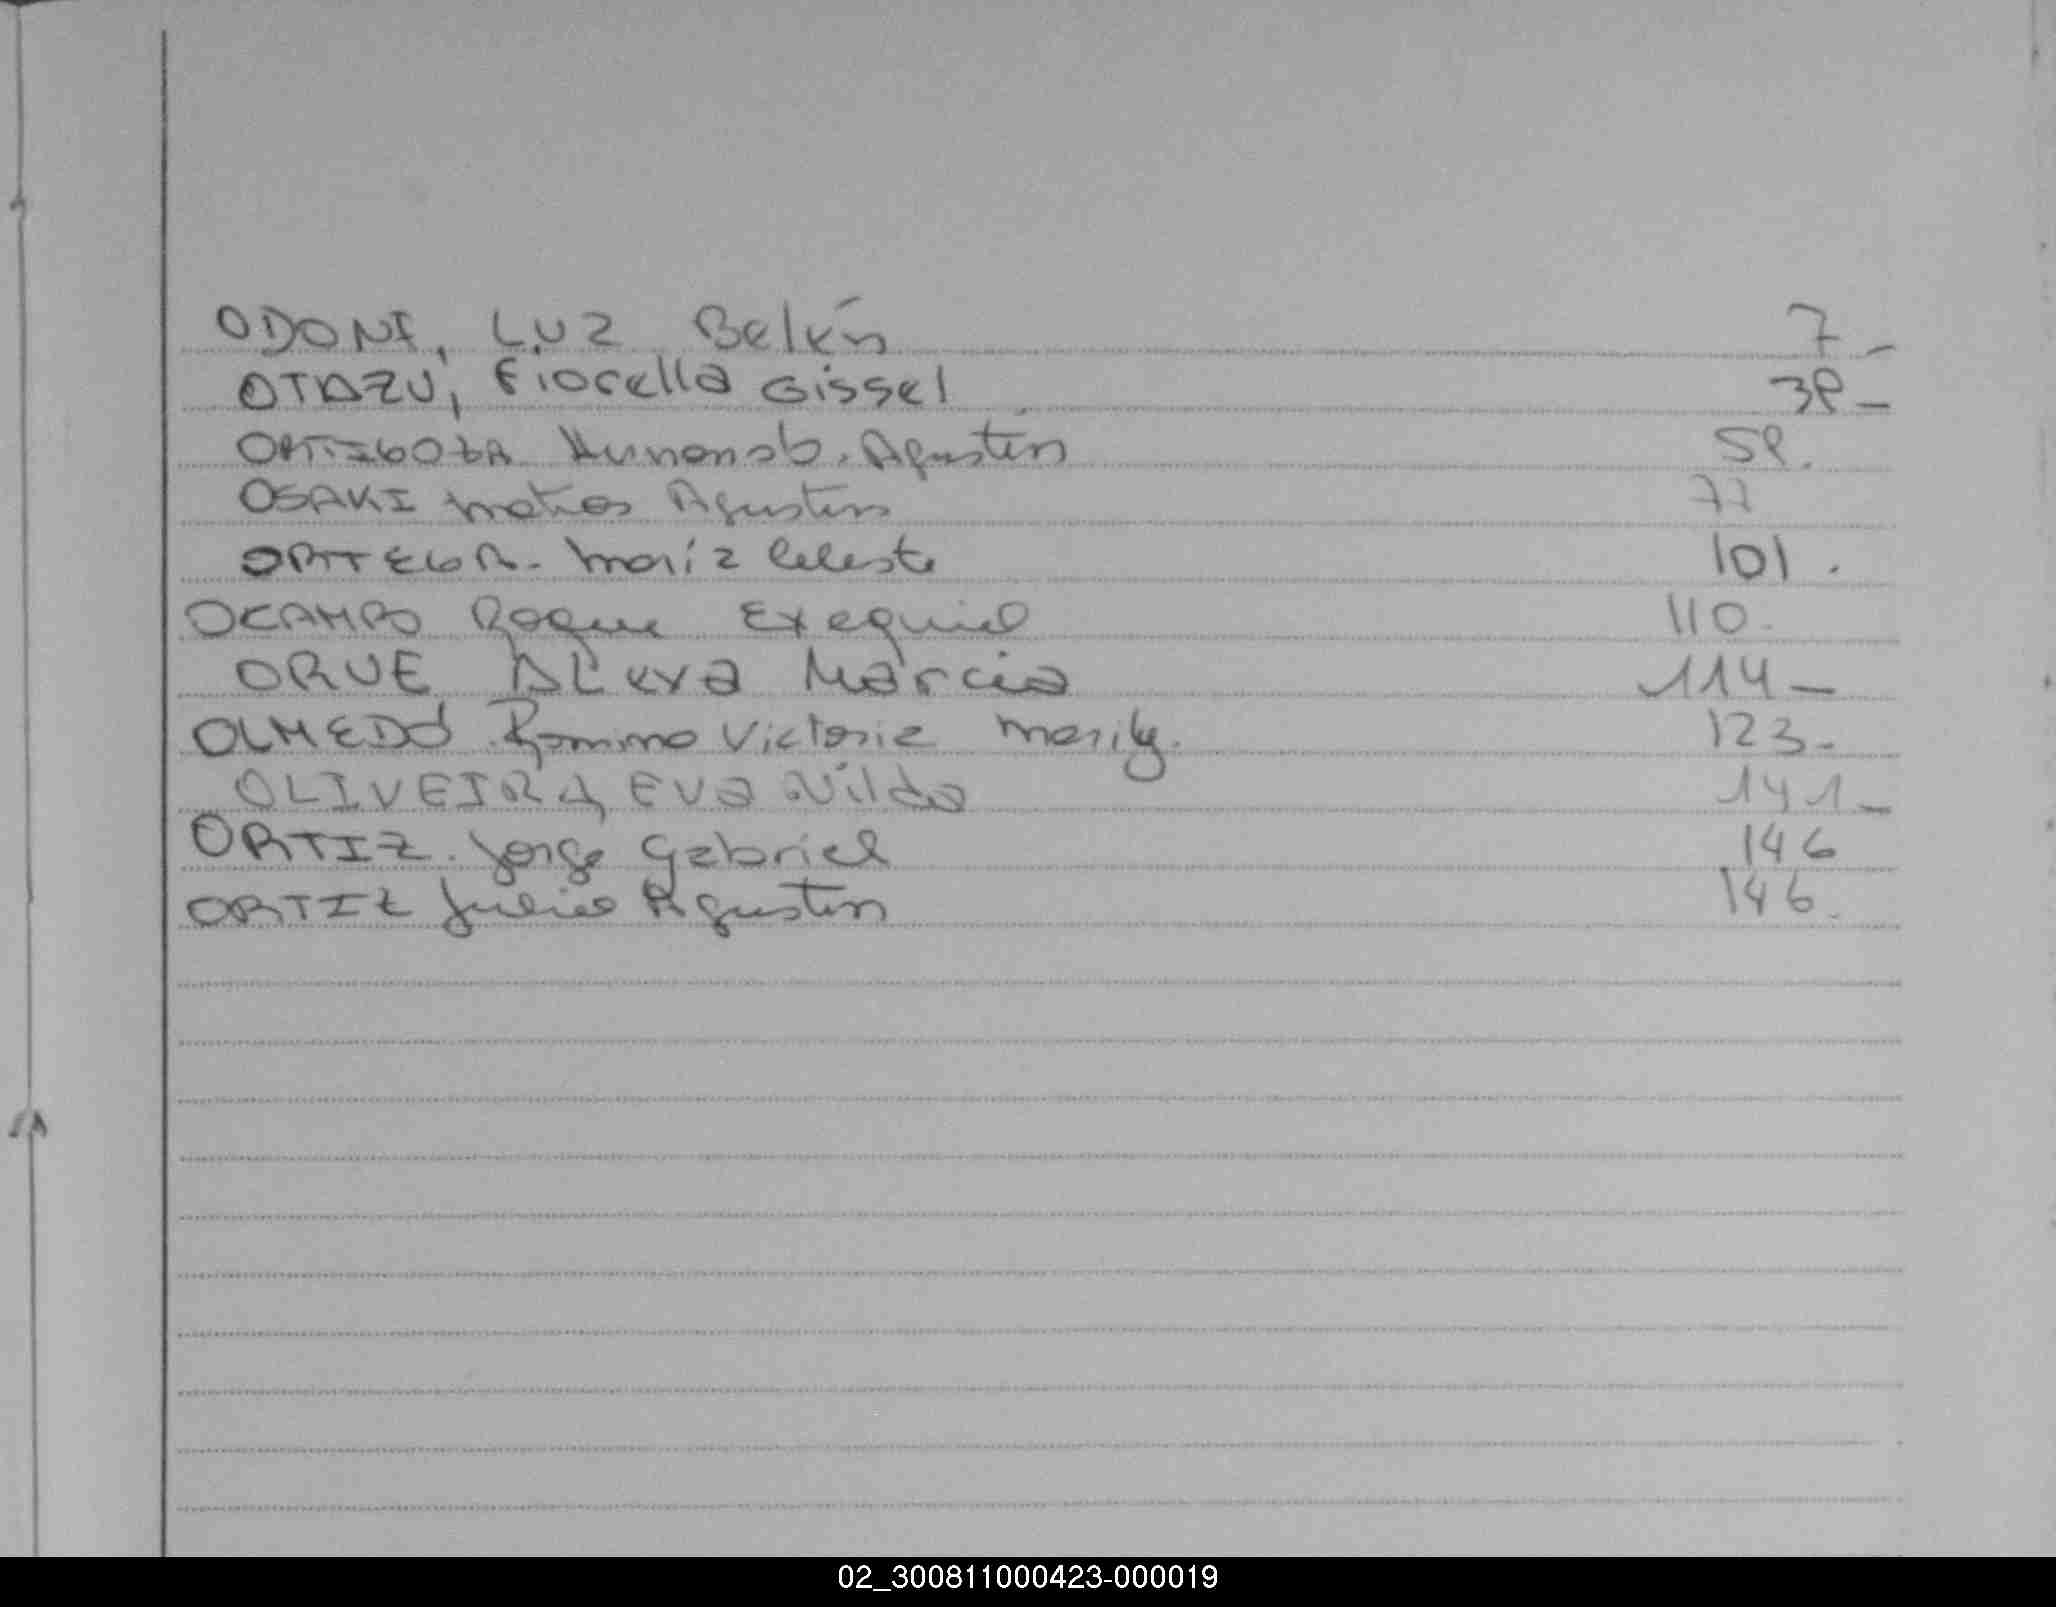 ODONI, LUZ Belén 7_
OTAZU, Fiorella Gissel 38_
ORTIGOZA Agustín 58.
OSAKI Matias Agustin 77
ORTEGA. María Celeste 101.
OCAMPO Roque Exequiel 110.
ORUE Alexa Marcia 114_
OLMEDO Romina Victoria 123_
OLIVEIRA, EVA Nilda 141_
ORTIZ. Jorge Gabriel 146
ORTIZ Agustin 146.
02_300811000423-000019